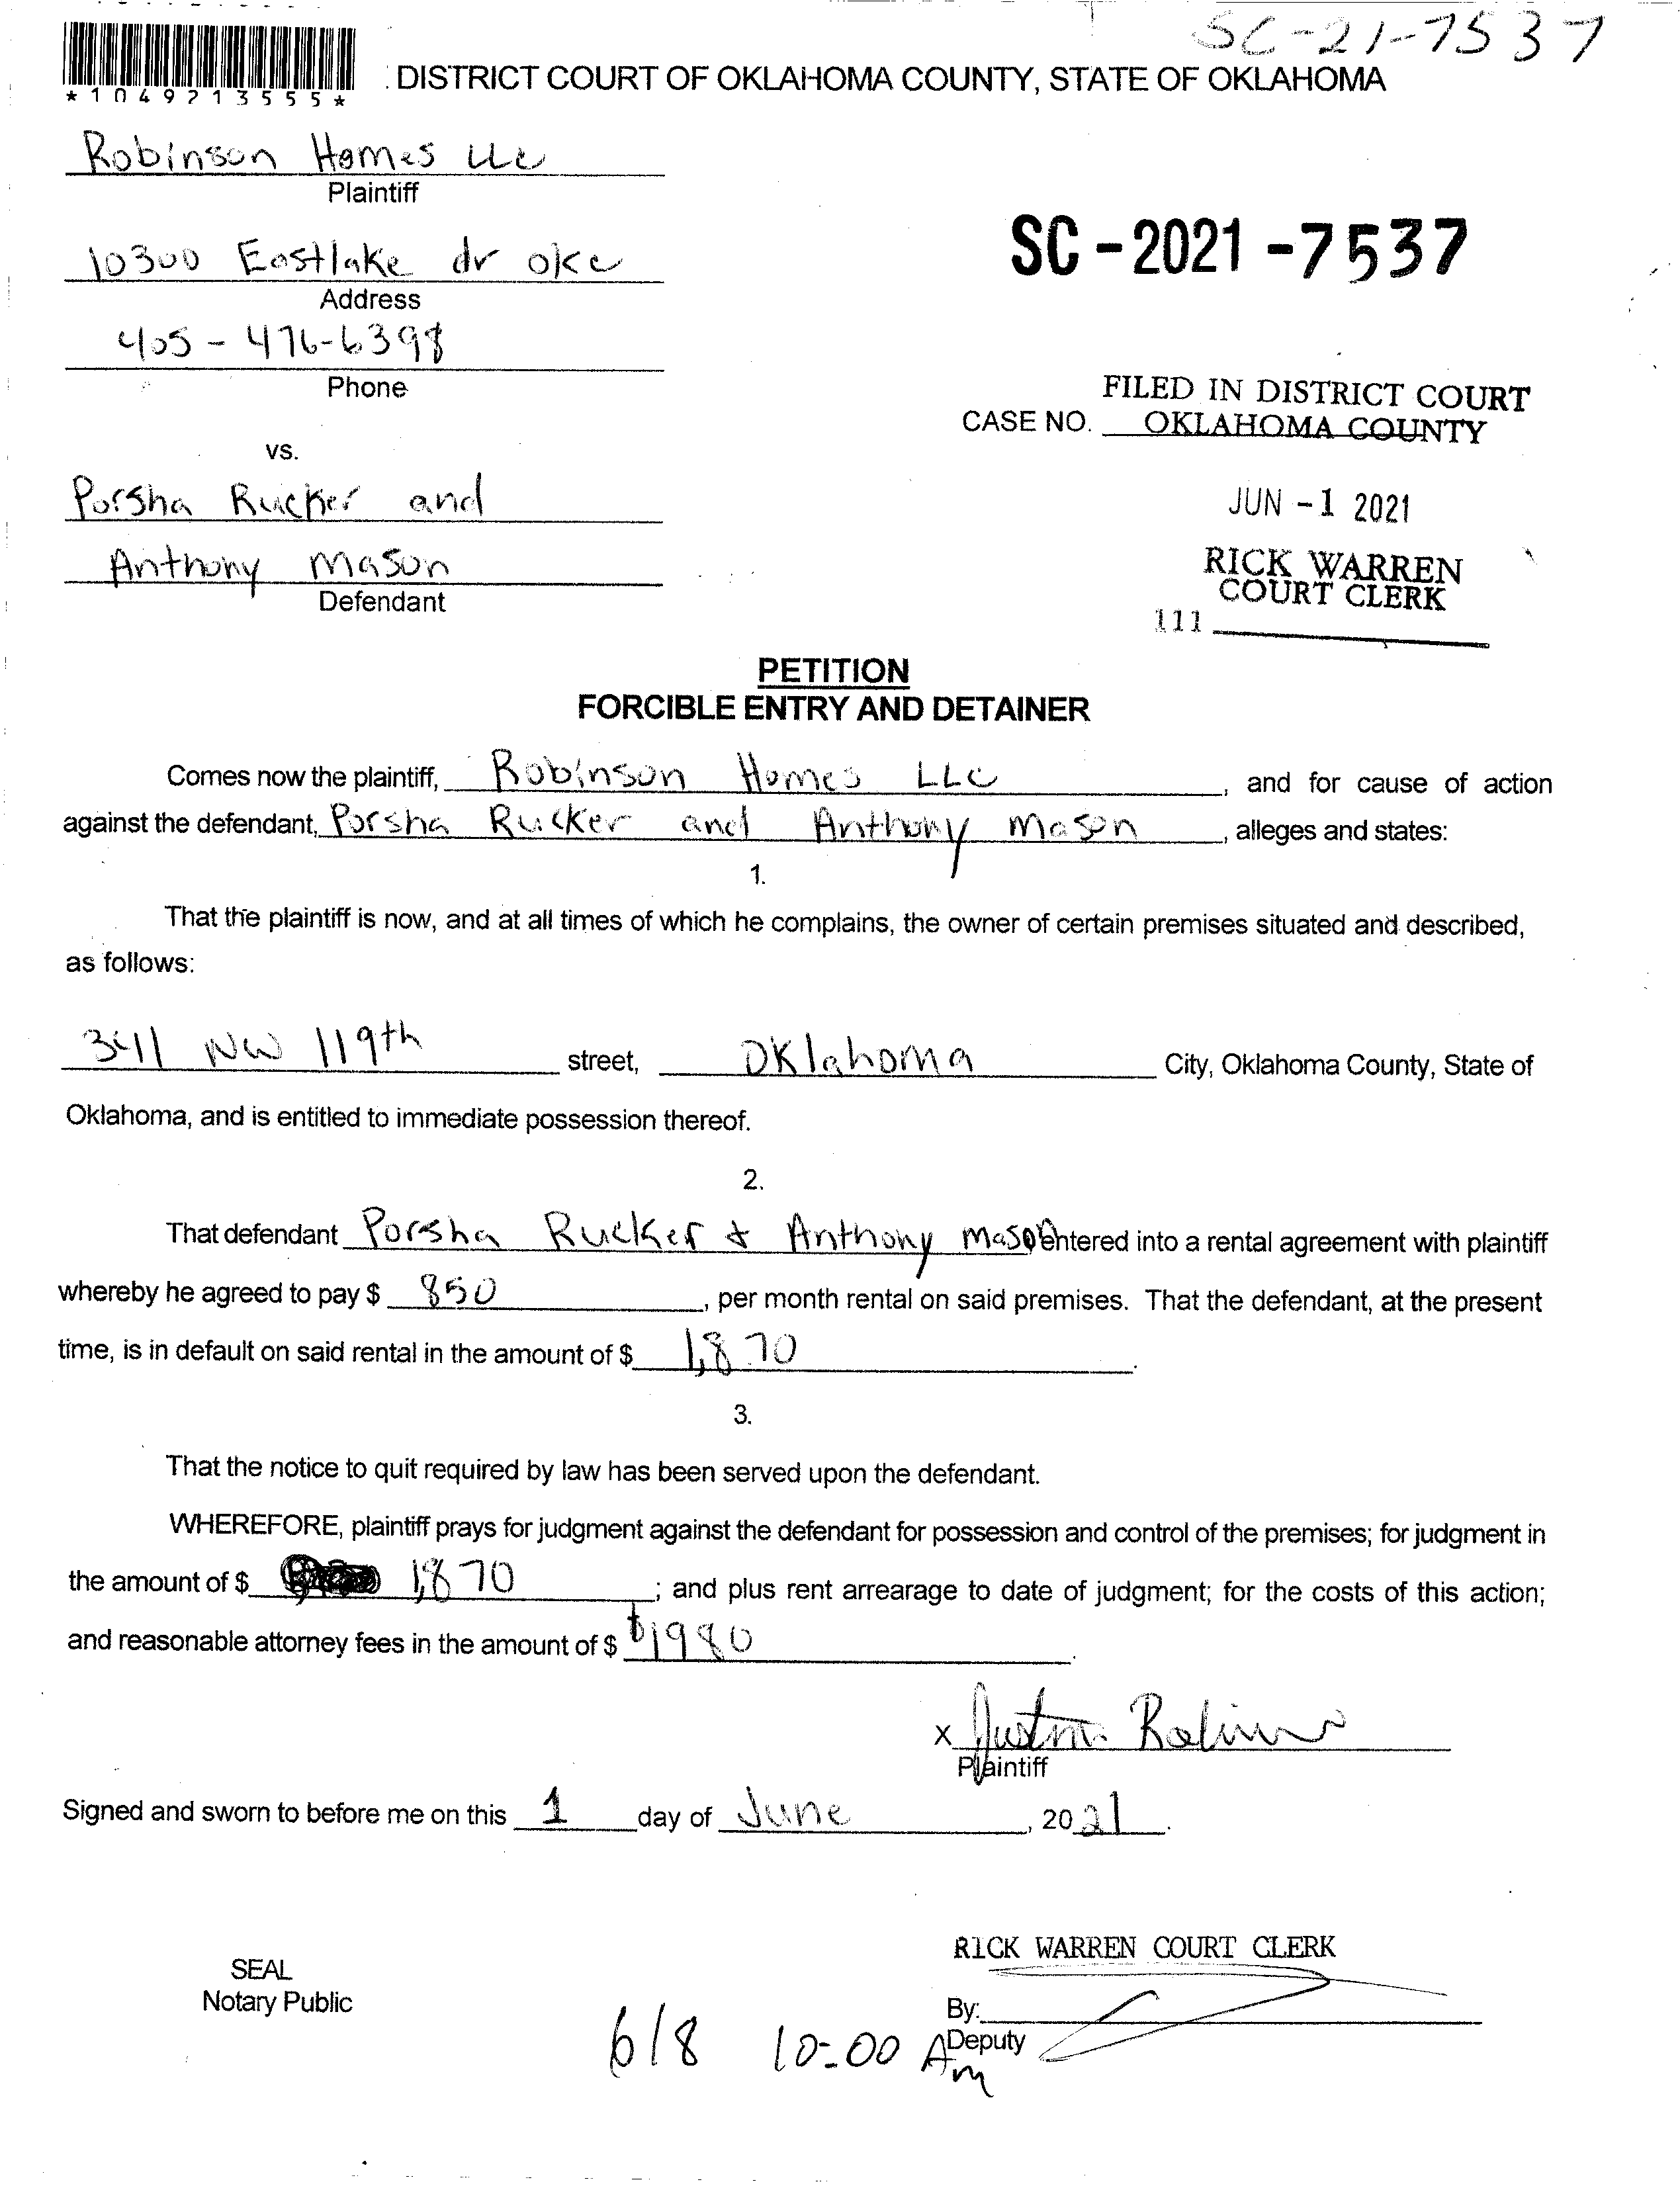 SC-21-7537
*1049213555*
DISTRICT COURT OF OKLAHOMA COUNTY, STATE OF OKLAHOMA
Robinson Homes LLC
Plaintiff
10300 Eastlake dr okc
Address
405-476-6398
Phone
vs.
Porsha Rucker and
Anthony Mason
Defendant
SC-2021-7537
FILED IN DISTRICT COURT
CASE NO. OKLAHOMA COUNTY
JUN -1 2021
RICK WARREN
COURT CLERK
111
PETITION
FORCIBLE ENTRY AND DETAINER
Comes now the plaintiff, Robinson Homes LLC, and for cause of action
against the defendant, Porsha Rucker and Anthony Mason, alleges and states:
1.
That the plaintiff is now, and at all times of which he complains, the owner of certain premises situated and described,
as follows:
3411 NW 119th street, Oklahoma City, Oklahoma County, State of
Oklahoma, and is entitled to immediate possession thereof.
2.
That defendant Porsha Rucker & Anthony Mason entered into a rental agreement with plaintiff
whereby he agreed to pay $ 850, per month rental on said premises. That the defendant, at the present
time, is in default on said rental in the amount of $ 1,870.
3.
That the notice to quit required by law has been served upon the defendant.
WHEREFORE, plaintiff prays for judgment against the defendant for possession and control of the premises; for judgment in
the amount of $ 1,870; and plus rent arrearage to date of judgment; for the costs of this action;
and reasonable attorney fees in the amount of $ $1980.
x
Plaintiff
Signed and sworn to before me on this 1 day of June, 2021.
RICK WARREN COURT CLERK
SEAL
Notary Public
By:
Deputy
6/8 10:00 Am